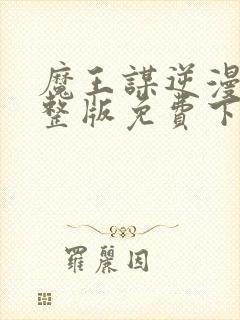 魔王謀逆漫
整版免費下
羅麗因